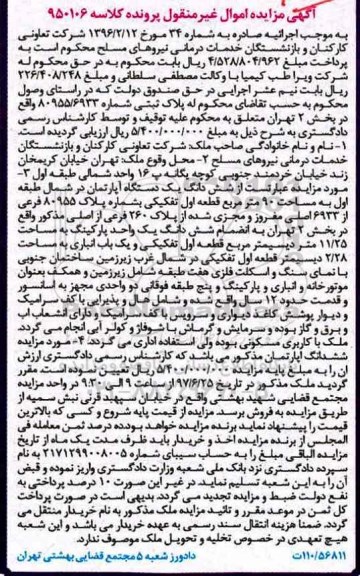 آگهی مزایده اموال غیر منقول پرونده کلاسه ۹۵۰۱۰۶
به موجب اجرائیه صادره به شماره ۳۴ مورخ ۱۳۹۶/۲/۱۲ شرکت تعاونی
کارکنان و بازنشستگان خدمات درمانی نیروهای مسلح محکوم است به
پرداخت مبلغ ۴/۵۲۸/۸۰۴/۹۶۲ ریال بابت محکوم به در حق محکوم له
شرکت ویرا طب کیمیا با وکالت مصطفی سلطانی و مبلغ ۲۲۶/۴۰۸/۲۴۸
ریال بابت نیم عشر اجرایی در حق صندوق دولت که در راستای وصول
محکوم به حسب تقاضای محکوم له پلاک ثبتی شماره ۸۰۹۵۵/۶۹۳۳ واقع
در بخش ۲ تهران متعلق به محکوم علیه توقیف و توسط کارشناس رسمی
دادگستری به شرح ذیل به مبلغ ۵/۴۰۰/۰۰۰/۰۰۰ ریال ارزیابی گردیده است.
۱- نام و نام خانوادگی صاحب ملک: شرکت تعاونی کارکنان و بازنشستگان
خدمات درمانی نیروهای مسلح ۲- محل وقوع ملک: تهران خیابان کریمخان
زند خیابان خردمند جنوبی کوچه یگانه پ ۱۶ واحد شمالی طبقه اول ۳-
مورد مزایده عبارتست از شش دانگ یک دستگاه آپارتمان در شمال طبقه
اول به مساحت متر مربع قطعه اول تفکیکی بشماره پلاک ۸۰۹۵۵ فرعی
از ۶۹۳۳ اصلی مفروز و مجزی شده از پلاک ۲۶۰ فرعی از اصلی مذکور واقع
در بخش ۲ تهران به انضمام شش دانگ یک واحد پارکینگ به مساحت
۱۱/۲۵ متر دیسیمتر مربع قطعه اول تفکیکی و یک باب انباری به مساحت
۲/۲۸ دیسیمتر قطعه اول تفکیکی در شمال غرب زیرزمین ساختمان جنوبی
با نمای سنگ و اسکلت فلزی هفت طبقه شامل زیرزمین و همکف بعنوان
موتورخانه و انباری و پارکینگ و پنج طبقه فوقانی دو واحدی مجهز به آسانسور
و قدمت حدود ۱۲ سال واقع شده و شامل هال و پذیرایی با کف سرامیک
و دیوار پوشش کاغذ دیواری و سرویس با کف سرامیک و دارای انشعاب آب
و برق و گاز بوده و سرمایش و گرمایش با شوفاژ و کولر آبی انجام می گردد.
ملک با کاربری مسکونی بوده ولی استفاده اداری می گردد. ۴- مورد مزایده
ششدانگ آپارتمان مذکور می باشد که کارشناس رسمی دادگستری ارزش
آن را به مبلغ پایه مزایده ۵/۴۰۰/۰۰۰/۰۰۰ ریال تعیین نموده است. مقرر
گردید ملک مذکور در تاریخ ۹۷/۶/۲۵ از ساعت ۹ الی ۹:۳۰ در واحد مزایده
مجتمع قضایی شهید بهشتی واقع در خیابان سپهبد قرنی نبش سمیه از
طریق مزایده به فروش برسد. مزایده از قیمت پایه شروع و کسی که بالاترین
قیمت را پیشنهاد نماید برنده مزایده خواهد بود. ده درصد ثمن معامله فی
المجلس از برنده مزایده اخذ و خریدار باید ظرف مدت یک ماه از تاریخ
مزایده الباقی مبلغ را به حساب سیبای شماره ۲۱۷۱۲۹۹۰۰۸۰۰۵ به نام
سپرده دادگستری نزد بانک ملی شعبه وزارت دادگستری واریز نموده و قبض
آن را به این شعبه تسلیم نماید. در غیر این صورت ۱۰ درصد پرداختی به
نفع دولت ضبط و مزایده تجدید می گردد. بدیهی است در صورت پرداخت
کل ثمن در موعد مقرر و تائید مزایده ملک مذکور به نام خریدار منتقل می
گردد. ضمنا هزینه انتقال سند رسمی به عهده خریدار می باشد و این شعبه
هیچ تعهدی در خصوص تخلیه و تحویل ملک موصوف ندارد.
۱۱۰/۵۶۸۱۱ت دادورز شعبه ۵ مجتمع قضایی بهشتی تهران